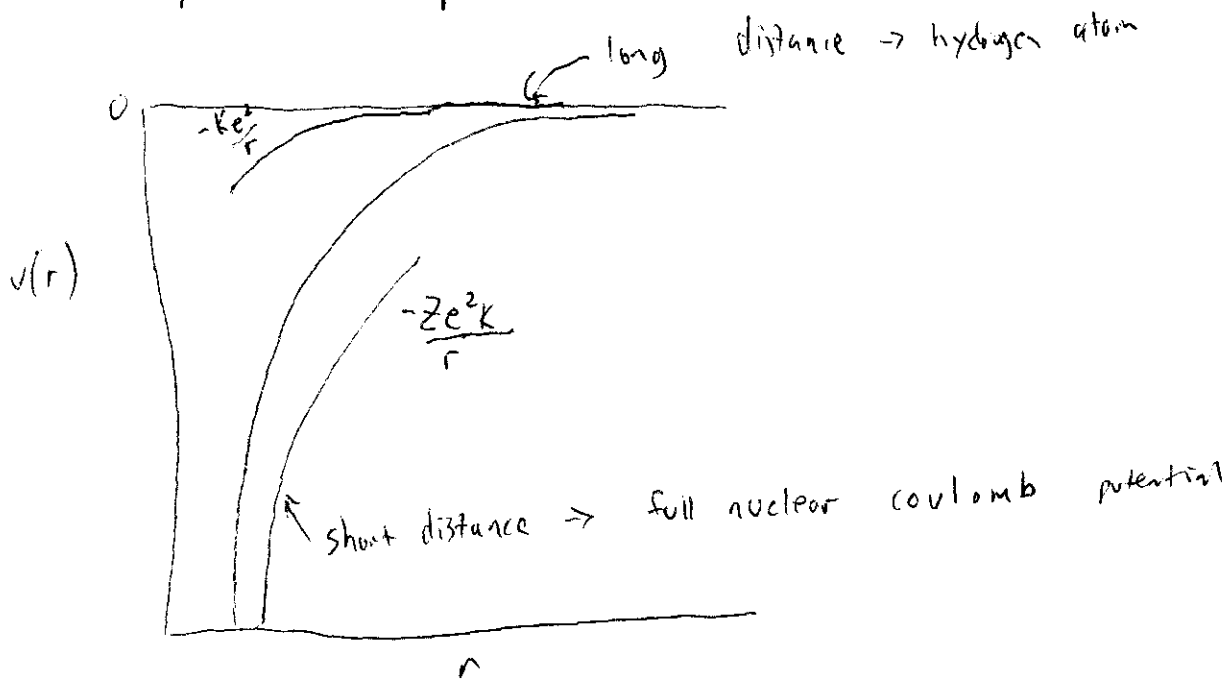 long distance → hydrogen atom
0
-ke²/r
v(r)
-Ze²k/r
short distance → full nuclear coulomb potential
r